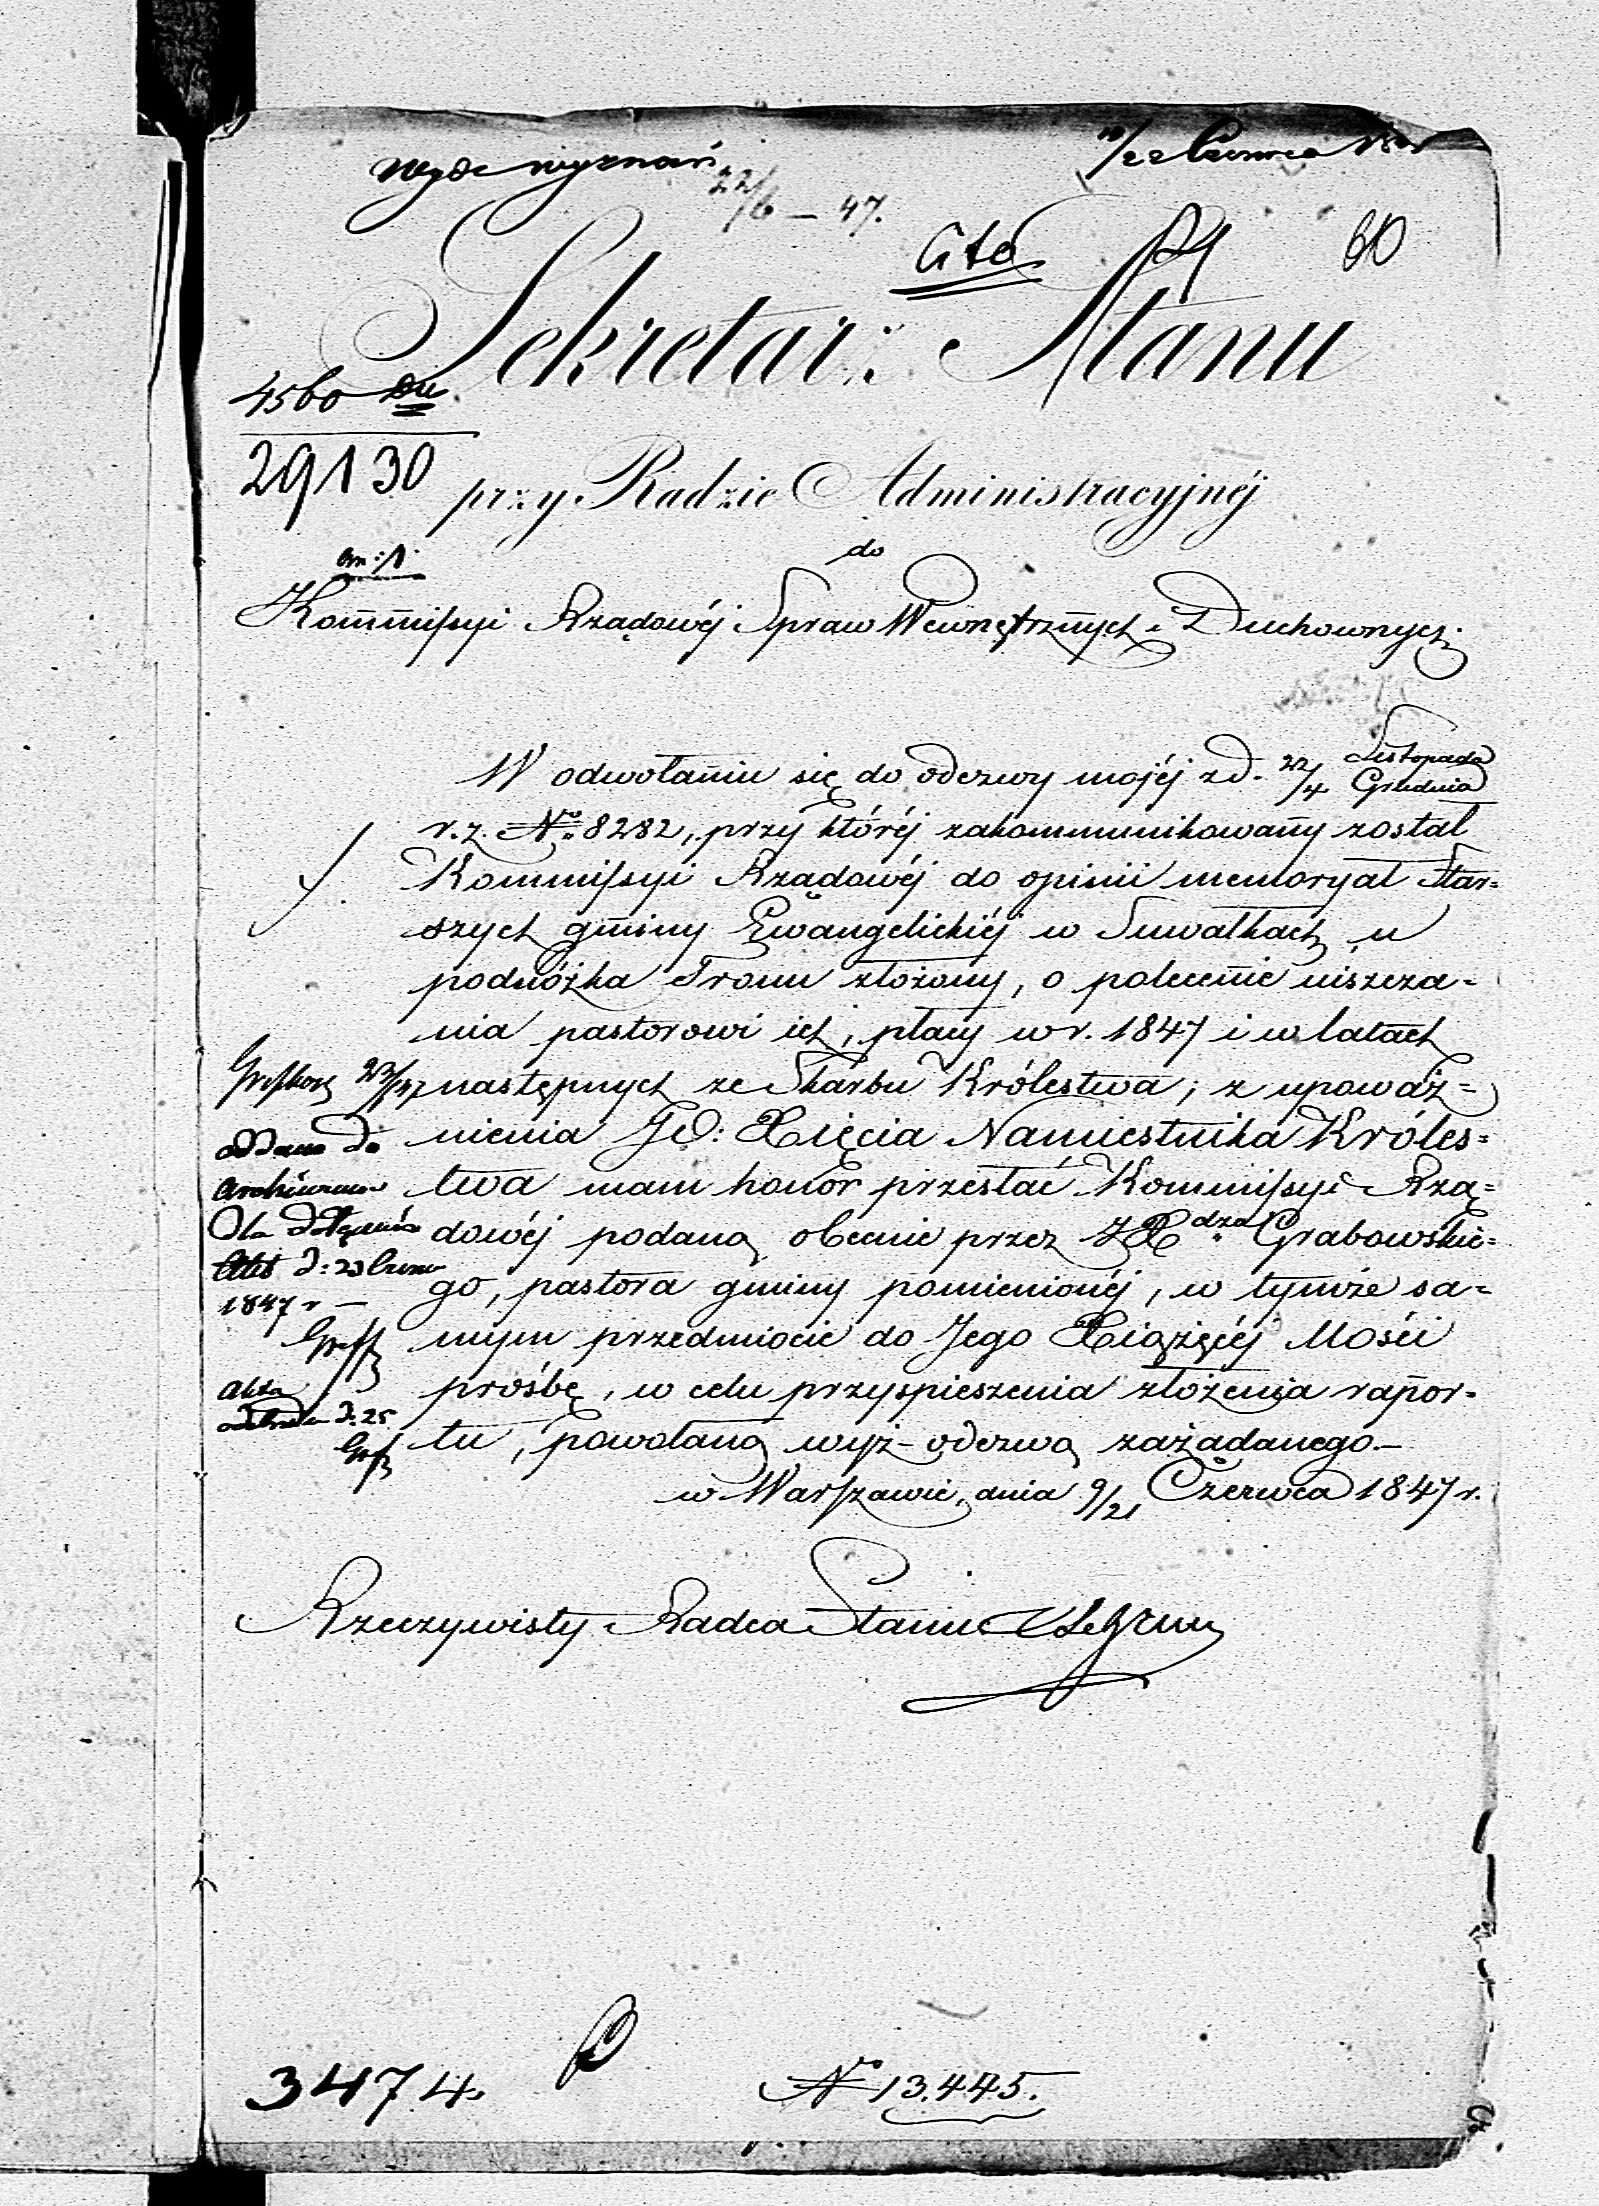 Wydz wyznań
22/6 – 47.
10/22 Czerwca
Cito
60
Sekretarz Stanu
4560
29130
przy Radzie Administracyjnéj
an: 1.
do
Kommissyi Rządowéj Spraw Wewnętrznych i Duchownych.
W odwołaniu się do odezwy mojéj z d. 22/4 Listopada Grudnia
r. z. No 8282, przy któréj zakommunikowany został
Kommissyi Rządowéj do opinii memoryał Star=
szych gminy Ewangelickiéj w Suwałkach u
podnóżka Tronu złożony, o polecenie uiszcza=
nia pastorowi ich, płacy w r. 1847 i w latach
następnych ze Skarbu Królestwa; z upoważ=
nienia JO: Xięcia Namiestnika Króles=
twa mam honor przesłać Kommissyi Rzą=
dowéj podaną obecnie przez JXdza Grabowskie=
go, pastora gminy pomienionéj, w tymże sa=
mym przedmiocie do Jego Xiążęcéj Mości
prośbę, w celu przyspieszenia złożenia rapor=
tu, powołaną wyż odezwą zażądanego.—
w Warszawie, dnia 9/21 Czerwca 1847 r.
oddano do
Archiwum
Dla dołączenia
Akt d: 23 Czerw
1847 r —
Akta
odebrałem d: 25
Rzeczywisty Radca Stanu
3474
No 13.445.